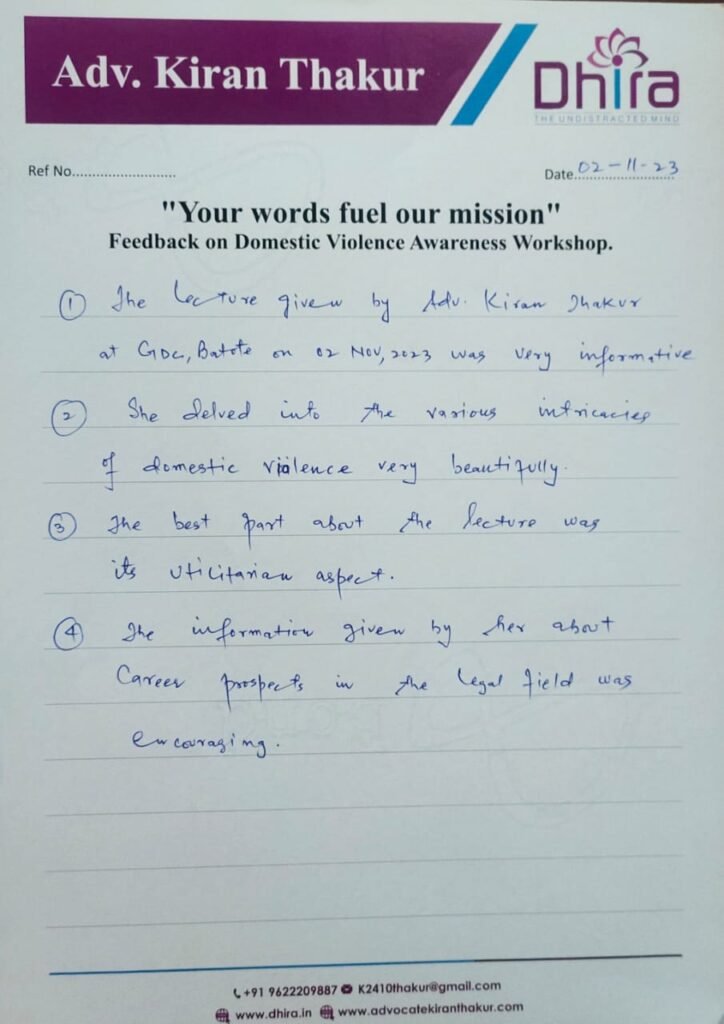 Adv. Kiran Thakur
Dhira
THE UNDISTRACTED MIND
Ref No..........................
Date 02-11-23
"Your words fuel our mission"
Feedback on Domestic Violence Awareness Workshop.
① The lecture given by Adv. Kiran Thakur
at GDC, Batote on 02 Nov, 2023 was very informative
② She delved into the various intricacies
of domestic violence very beautifully.
③ The best part about the lecture was
its utilitarian aspect.
④ The information given by her about
Career prospects in the legal field was
encouraging.
+91 9622209887 K2410thakur@gmail.com
www.dhira.in www.advocatekiranthakur.com